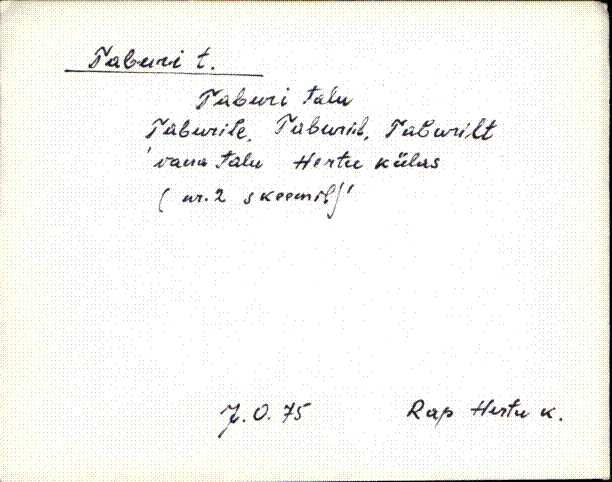 Taburi t.
Taburi talu
Taburile, Taburil, Taburilt
'vana talu Hertu külas
(nr. 2 skeemil)'
J. O. 75 Rap Hertu k.